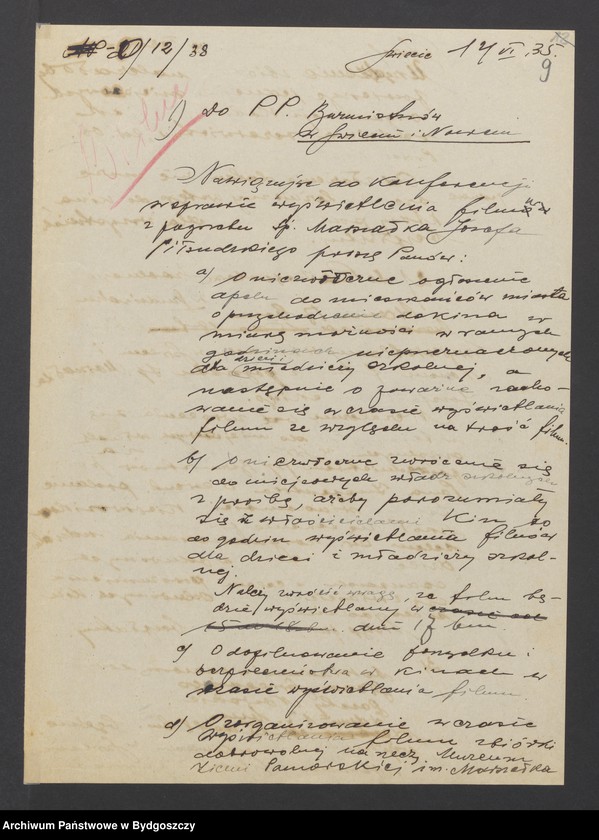 /12/38 Świecie 14 VI 35.
9
1) Do PP. Burmistrzów
w Świeciu i Nowem
Nawiązując do Konferencji
w sprawie wyświetlenia filmu
z pogrzebu śp. Marszałka Józefa
Piłsudskiego proszę Panów:
a) O niezwłoczne ogłoszenie
apelu do mieszkańców miasta
o przychodzenie do kina w
miarę możności w ramych
godzinach nieprzeznaczonych
dla dzieci i młodzieży szkolnej, a
następnie o poważne zacho-
wanie się w czasie wyświetlania
filmu ze względu na treść filmu.
b) O niezwłoczne zwrócenie się
do miejscowych władz szkolnych
z prośbą, ażeby porozumiały
się z właścicielami Kin co
do godzin wyświetlania filmów
dla dzieci i młodzieży szkol-
nej.
Należy zwrócić uwagę, że film bę-
dzie wyświetlany w czasie od
dnia 17 bm.
c) O dopilnowanie porządku i
bezpieczeństwa w Kinach w
czasie wyświetlania filmu.
d) O zorganizowanie w czasie
wyświetlania filmu zbiórki
dobrowolnej na rzecz Muzeum
Ziemi Pomorskiej im. Marszałka
Archiwum Państwowe w Bydgoszczy